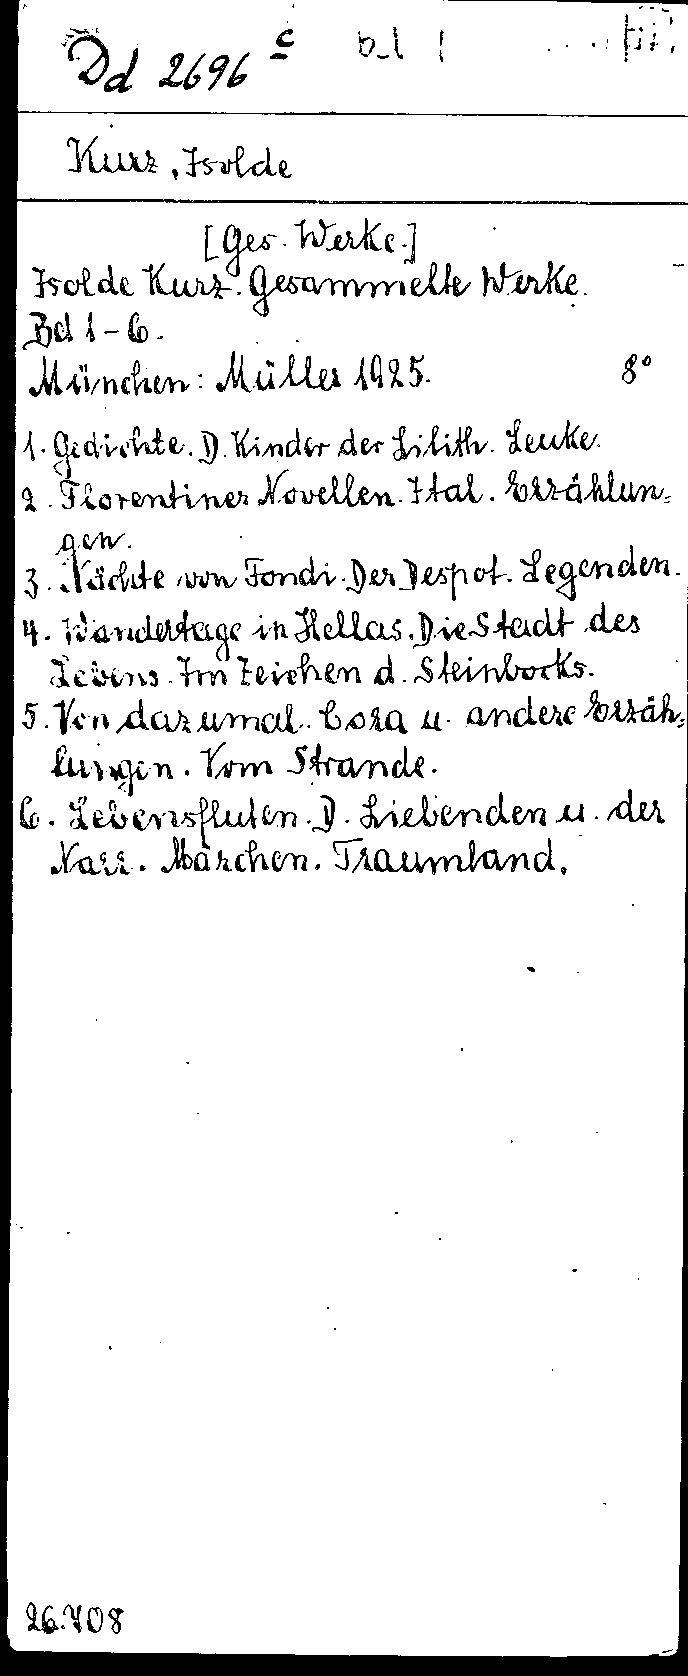 Dd 2696 c
Kurz, Isolde
[Ges. Werke.]
Isolde Kurz. Gesammelte Werke.
Bd 1-6.
München: Müller 1925. 8°
1. Gedichte. D. Kinder der Lilith. Leuke.
2. Florentiner Novellen. Ital. Erzählun=
gen.
3. Nächte von Fondi. Der Despot. Legenden.
4. Wandertage in Hellas. Die Stadt des
Lebens. Im Zeichen d. Steinbocks.
5. Von dazumal. Cora u. andere Erzäh=
lungen. Vom Strande.
6. Lebensfluten. D. Liebenden u. der
Narr. Märchen. Traumland.
26.708